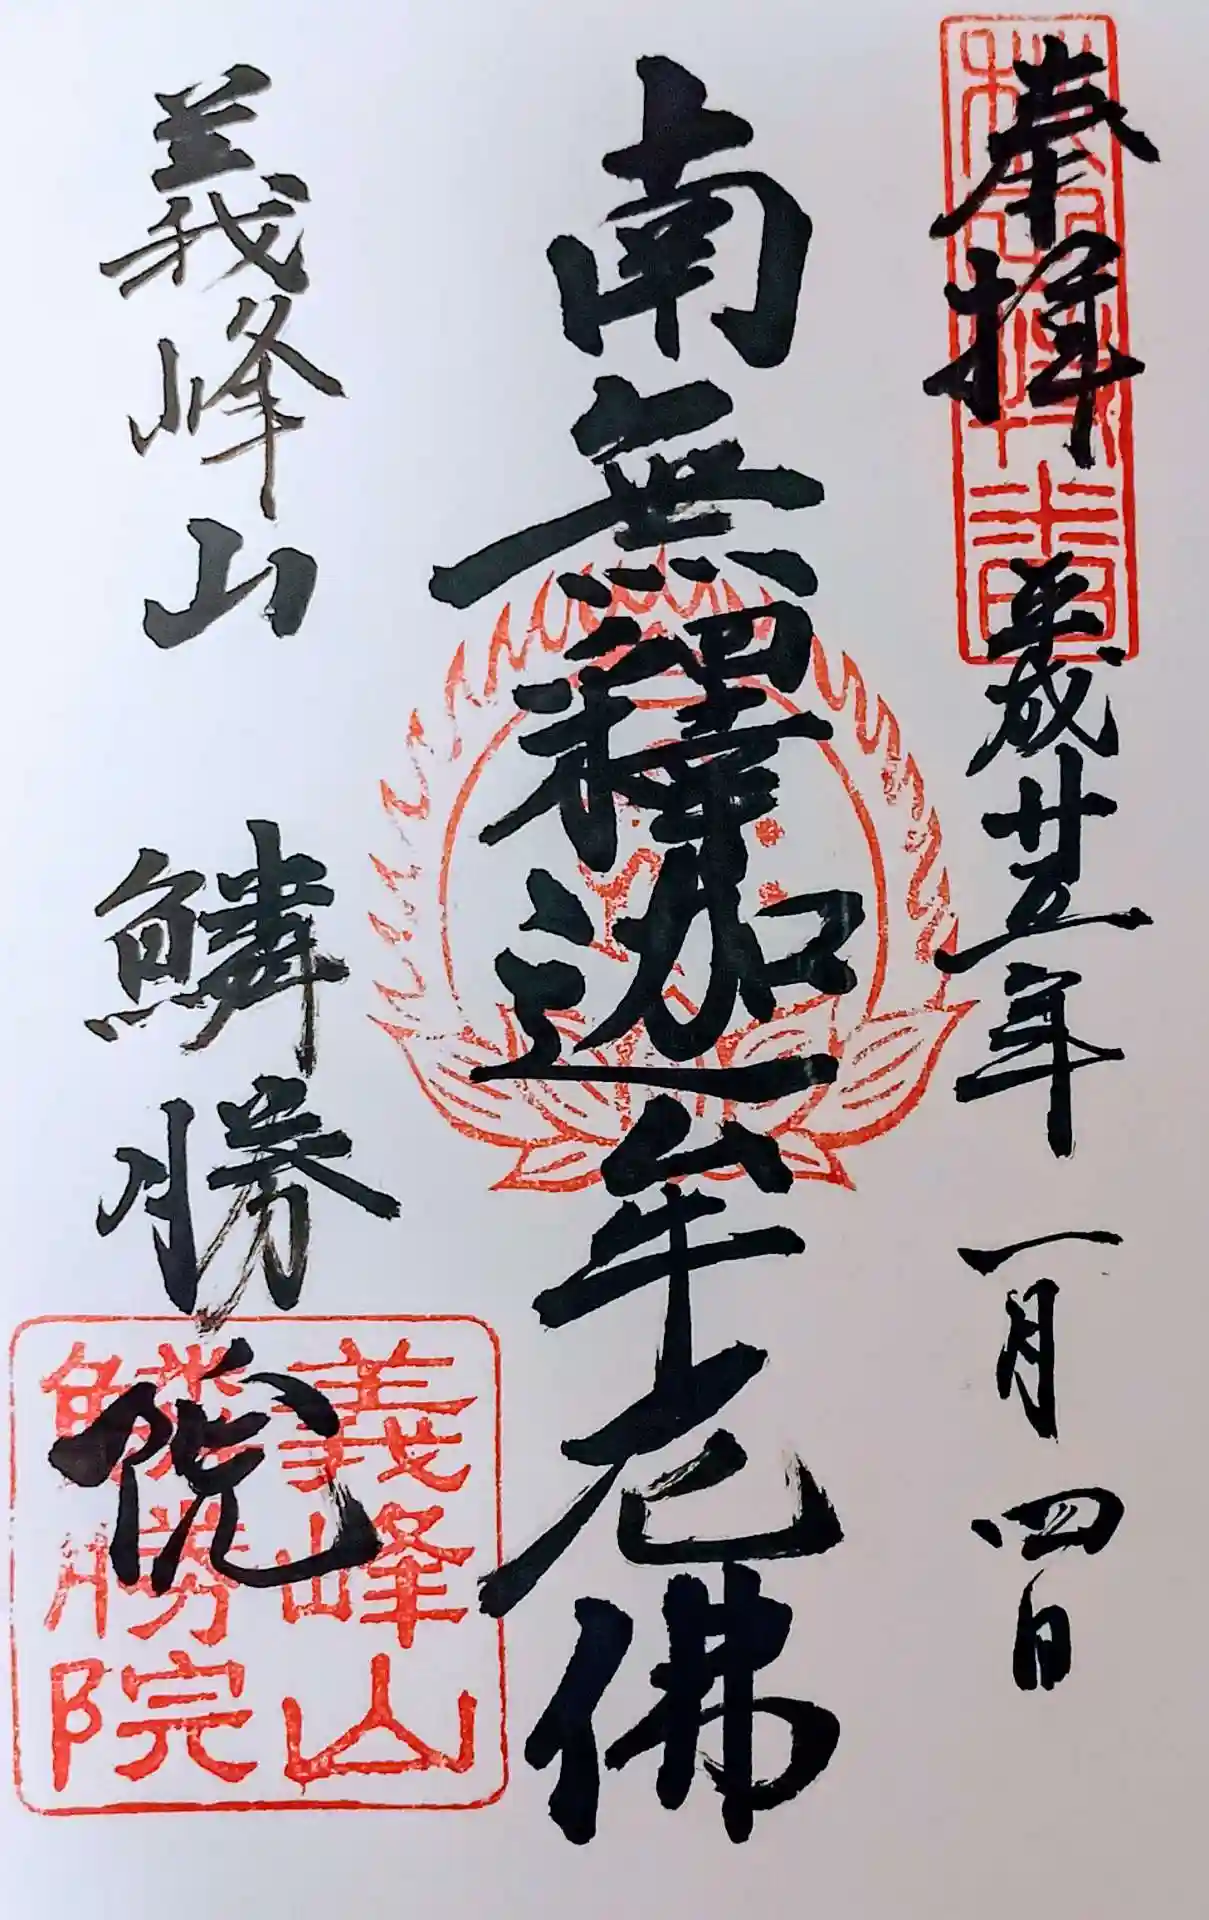 奉拝 平成廿五年 一月 四日
南無釋迦牟尼佛
義峰山 鱗勝院
義峰山
鱗勝院